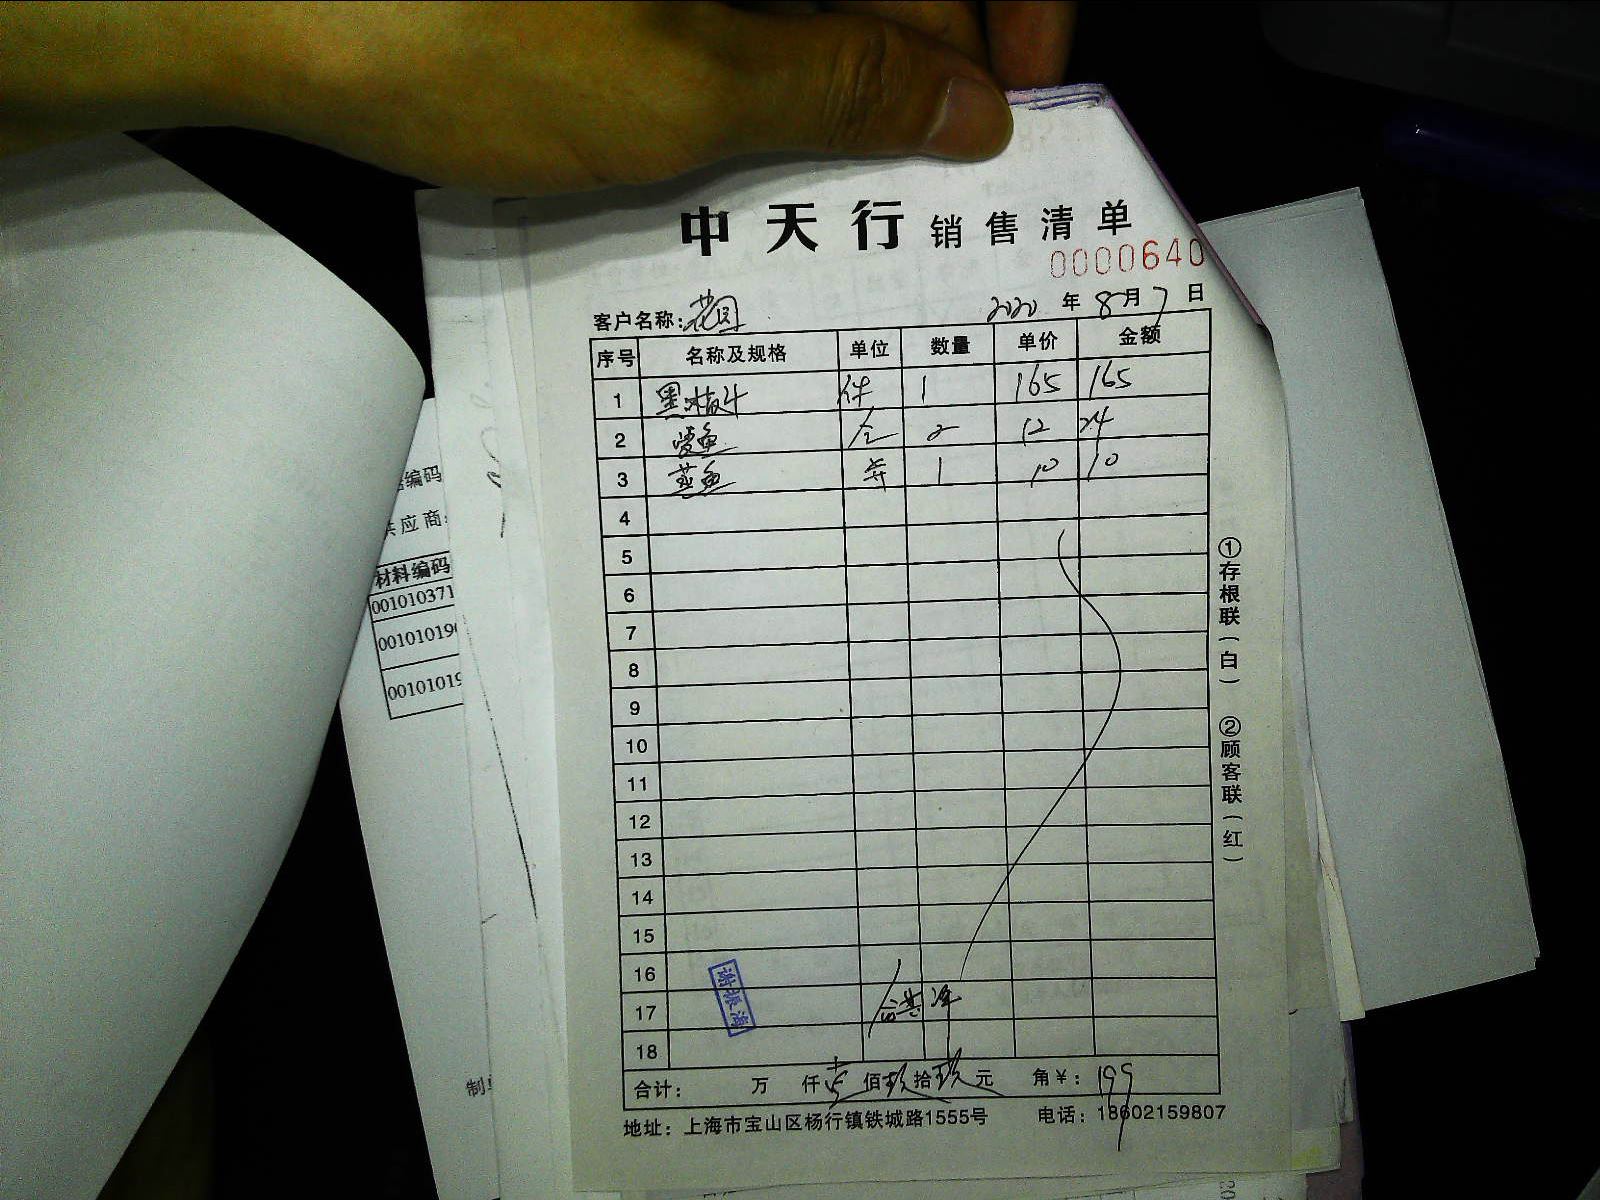 中天行销售清单
0000640
客户名称：花园 2020年8月7日
序号 名称及规格 单位 数量 单价 金额
1 件 1 165 165
2 2 12 24
3 1 10 10
4
5
6
7
8
9
10
11
12
13
14
15
16
17
18
谢振海
合计： 万 仟壱佰玖拾玖元 角¥：199
地址：上海市宝山区杨行镇铁城路1555号 电话：18602159807
①存根联（白） ②顾客联（红）
编码
供应商：
材料编码
001010371
0010101
0010101
制